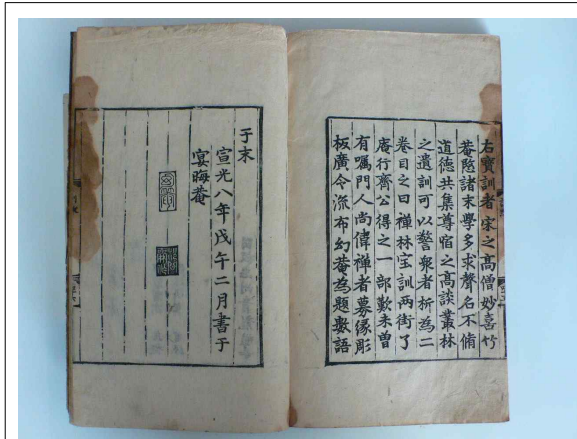 右寶訓者宋之高僧妙喜竹
菴愍諸末學多求聲名不脩
道德共集尊宿之高談叢林
之遺訓可以警衆者析為二
卷目之曰禪林宝訓两街了
庵行齊公得之一部歎未曾
有嘱門人尚偉禪者募縁彫
板廣令流布幻菴為題數語
于末
宣光八年戊午二月書于
宴晦菴